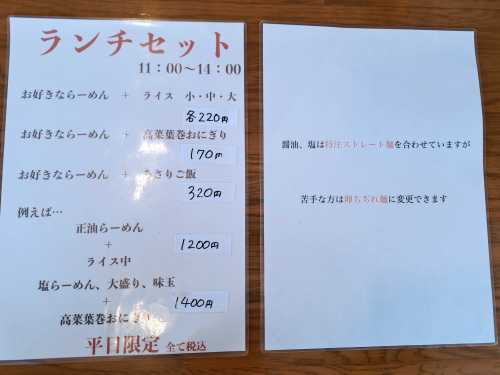 ランチセット
11：00～14：00
お好きならーめん ＋ ライス 小・中・大
各220円
お好きならーめん ＋ 高菜葉巻おにぎり
170円
お好きならーめん ＋ あさりご飯
320円
例えば…
正油らーめん
＋
1200円
ライス中
塩らーめん、大盛り、味玉
＋
1400円
高菜葉巻おにぎり
平日限定 全て税込
醤油、塩は特注ストレート麺を合わせていますが
苦手な方は卵ちぢれ麺に変更できます